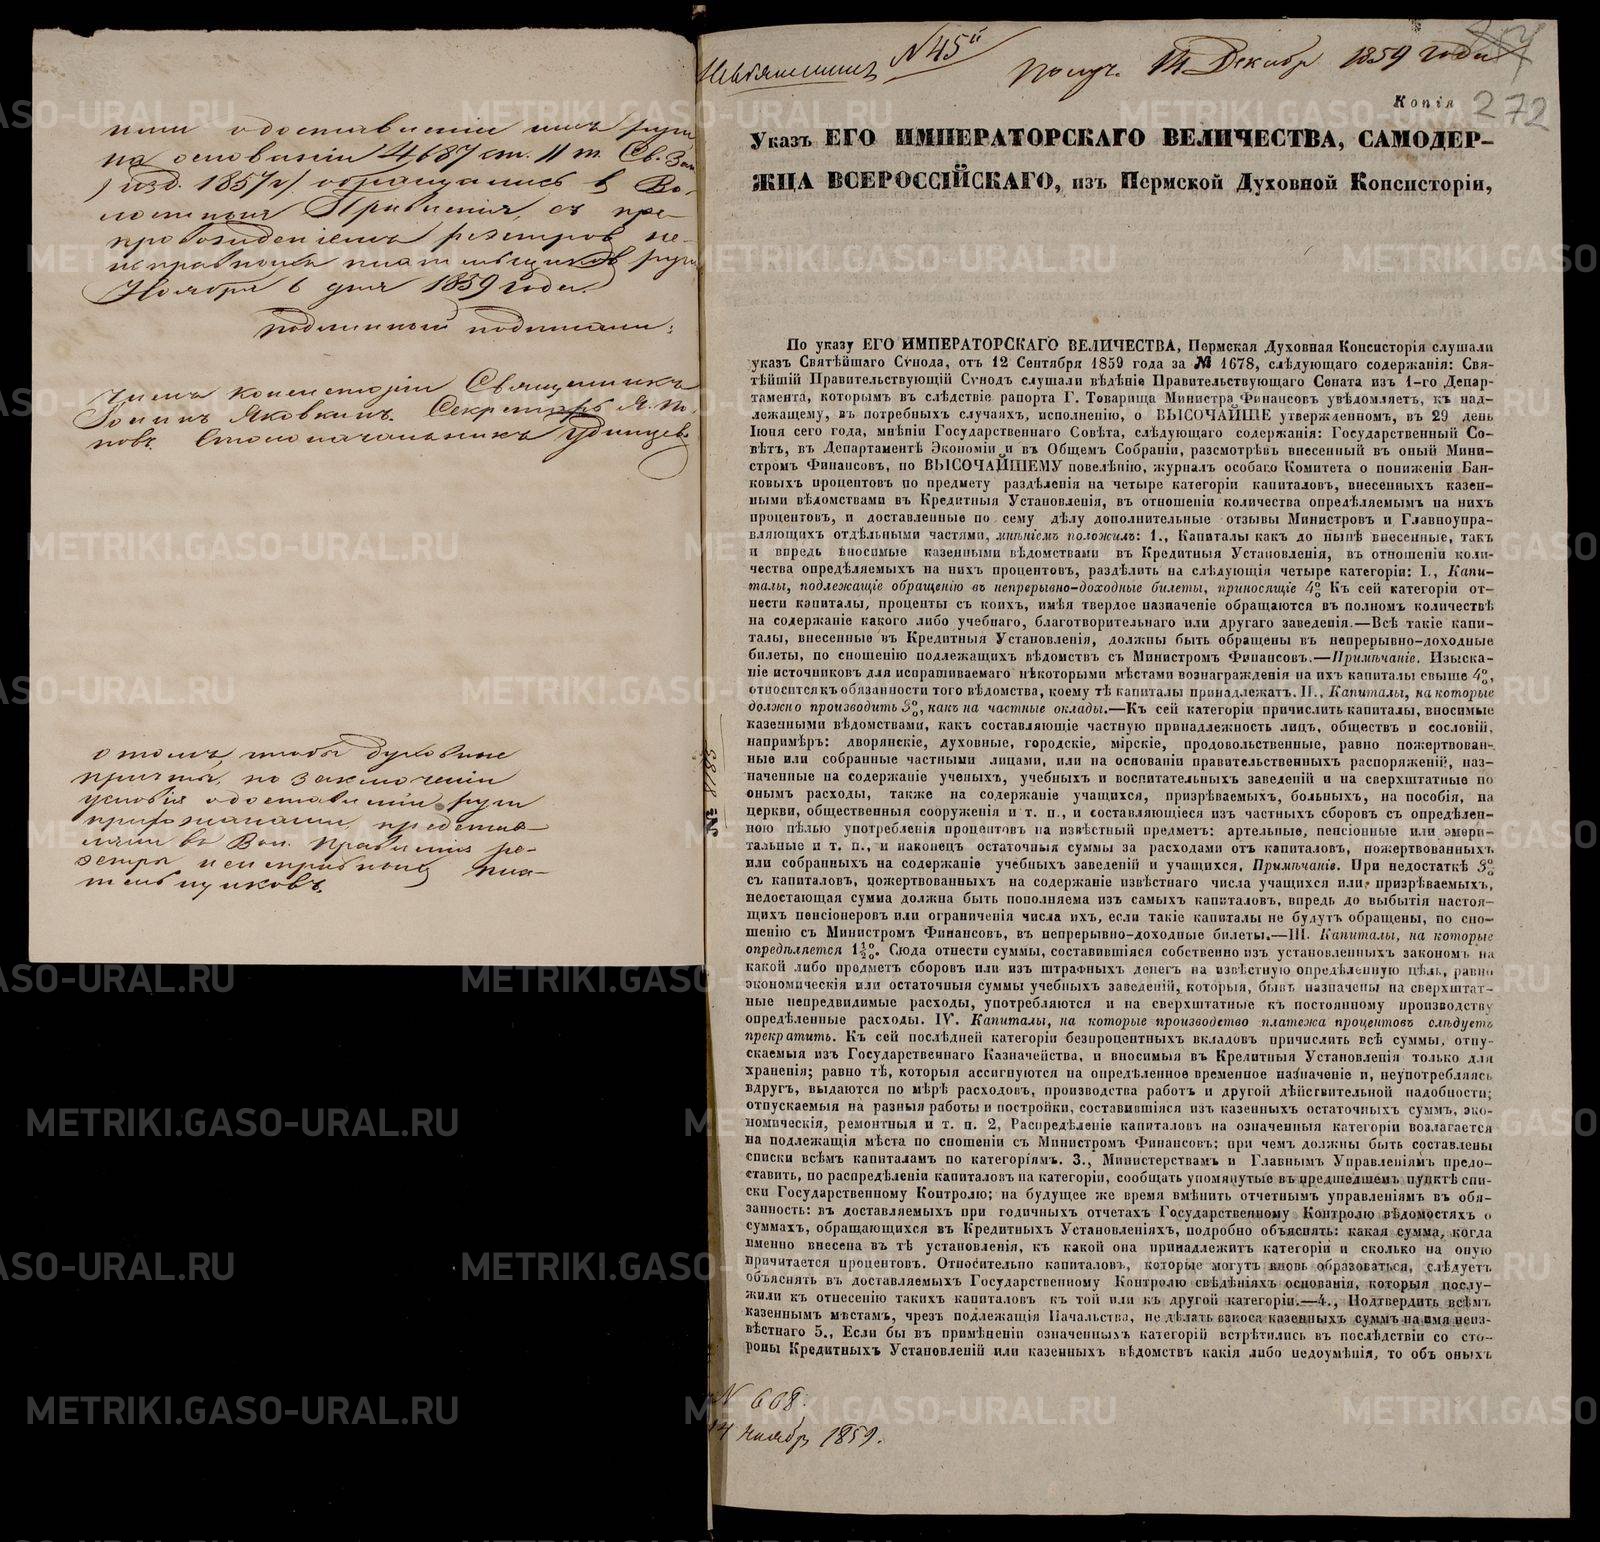 нами о доставленіи имъ руги
на основаніи 4687 ст. II т. Св. Зак.
/изд. 1857 г./ обращались в Во-
лостныя Правленія, съ пре-
провожденіемъ реэстровъ не-
исправныхъ плательщиковъ руги
Ноября 6 дня 1859 года.
подлинный подписали:
Членъ Консисторіи Священникъ
Іоаннъ Яковкинъ. Секретарь А. По-
повъ. Столоначальникъ Удинцев
о томъ, чтобы духовные
причты, по заключеніи
условія о доставленіи руги
прихожанами, представ-
ляли въ Вол. Правленія ре-
эстры неисправныхъ пла-
тельщиковъ.
№ 45й
Получ. 14 Декабр 1859 года
Копія 272
Указъ ЕГО ИМПЕРАТОРСКАГО ВЕЛИЧЕСТВА, САМОДЕР-
ЖЦА ВСЕРОССІЙСКАГО, изъ Пермской Духовной Консисторіи,
По указу ЕГО ИМПЕРАТОРСКАГО ВЕЛИЧЕСТВА, Пермская Духовная Консисторія слушали
указъ Святѣйшаго Сѵнода, отъ 12 Сентября 1859 года за № 1678, слѣдующаго содержанія: Свя-
тѣйшій Правительствующій Сѵнодъ слушали вѣдѣніе Правительствующаго Сената изъ 1-го Депар-
тамента, которымъ въ слѣдствіе рапорта Г. Товарища Министра Финансовъ увѣдомляетъ, къ над-
лежащему, въ потребныхъ случаяхъ, исполненію, о ВЫСОЧАЙШЕ утвержденномъ, въ 29 день
Іюня сего года, мнѣніи Государственнаго Совѣта, слѣдующаго содержанія: Государственный Со-
вѣтъ, въ Департаментѣ Экономіи и въ Общемъ Собраніи, разсмотрѣвъ внесенный въ оный Мини-
стромъ Финансовъ, по ВЫСОЧАЙШЕМУ повелѣнію, журналъ особаго Комитета о пониженіи Бан-
ковыхъ процентовъ по предмету раздѣленія на четыре категоріи капиталовъ, внесенныхъ казен-
ными вѣдомствами въ Кредитныя Установленія, въ отношеніи количества опредѣляемымъ на нихъ
процентовъ, и доставленные по сему дѣлу дополнительные отзывы Министровъ и Главноупра-
вляющихъ отдѣльными частями, мнѣніемъ положилъ: 1., Капиталы какъ до нынѣ внесенные, такъ
и впредь вносимые казенными вѣдомствами въ Кредитныя Установленія, въ отношеніи коли-
чества опредѣляемыхъ на нихъ процентовъ, раздѣлить на слѣдующія четыре категоріи: I., Капи-
талы, подлежащіе обращенію въ непрерывно-доходные билеты, приносящіе 4% Къ сей категоріи от-
нести капиталы, проценты съ коихъ, имѣя твердое назначеніе обращаются въ полномъ количествѣ
на содержаніе какого либо учебнаго, благотворительнаго или другаго заведенія.—Всѣ такіе капи-
талы, внесенные въ Кредитныя Установленія, должны быть обращены въ непрерывно-доходные
билеты, по сношенію подлежащихъ вѣдомствъ съ Министромъ Финансовъ.—Примѣчаніе. Изыска-
ніе источниковъ для испрашиваемаго нѣкоторыми мѣстами вознагражденія на ихъ капиталы свыше 4%,
относится къ обязанности того вѣдомства, коему тѣ капиталы принадлежатъ. II., Капиталы, на которые
должно производить 3%, какъ на частные оклады.—Къ сей категоріи причислить капиталы, вносимые
казенными вѣдомствами, какъ составляющіе частную принадлежность лицъ, обществъ и сословій,
напримѣръ: дворянскіе, духовные, городскіе, мірскіе, продовольственные, равно пожертвован-
ные или собранные частными лицами, или на основаніи правительственныхъ распоряженій, наз-
наченные на содержаніе ученыхъ, учебныхъ и воспитательныхъ заведеній и на сверхштатные по
онымъ расходы, также на содержаніе учащихся, призрѣваемыхъ, больныхъ, на пособія, на
церкви, общественныя сооруженія и т. п., и составляющіеся изъ частныхъ сборовъ съ опредѣлен-
ною цѣлью употребленія процентовъ на извѣстный предметъ: артельные, пенсіонные или эмери-
тальные и т. п., и наконецъ остаточныя суммы за расходами отъ капиталовъ, пожертвованныхъ
или собранныхъ на содержаніе учебныхъ заведеній и учащихся. Примѣчаніе. При недостаткѣ 3%
съ капиталовъ, пожертвованныхъ на содержаніе извѣстнаго числа учащихся или призрѣваемыхъ,
недостающая сумма должна быть пополняема изъ самыхъ капиталовъ, впредь до выбытія настоя-
щихъ пенсіонеровъ или ограниченія числа ихъ, если такіе капиталы не будутъ обращены, по сно-
шенію съ Министромъ Финансовъ, въ непрерывно-доходные билеты.—III. Капиталы, на которые
опредѣляется 1½%. Сюда отнести суммы, составившіяся собственно изъ установленныхъ закономъ на
какой либо предметъ сборовъ или изъ штрафныхъ денегъ на извѣстную опредѣленную цѣль, равно
экономическія или остаточныя суммы учебныхъ заведеній, которыя, бывъ назначены на сверхштат-
ные непредвидимые расходы, употребляются и на сверхштатные къ постоянному производству
опредѣленные расходы. IV. Капиталы, на которые производство платежа процентовъ слѣдуетъ
прекратить. Къ сей послѣдней категоріи безпроцентныхъ вкладовъ причислить всѣ суммы, отпу-
скаемыя изъ Государственнаго Казначейства, и вносимыя въ Кредитныя Установленія только для
храненія; равно тѣ, которыя ассигнуются на опредѣленное временное назначеніе и, неупотребляясь
вдругъ, выдаются по мѣрѣ расходовъ, производства работъ и другой дѣйствительной надобности;
отпускаемыя на разныя работы и постройки, составившіяся изъ казенныхъ остаточныхъ суммъ, эко-
номическія, ремонтныя и т. п. 2, Распредѣленіе капиталовъ на означенныя категоріи возлагается
на подлежащія мѣста по сношеніи съ Министромъ Финансовъ; при чемъ должны быть составлены
списки всѣмъ капиталамъ по категоріямъ. 3., Министерствамъ и Главнымъ Управленіямъ предо-
ставить, по распредѣленіи капиталовъ на категоріи, сообщать упомянутые въ предшедшемъ пунктѣ спи-
ски Государственному Контролю; на будущее же время вмѣнить отчетнымъ управленіямъ въ обя-
занность: въ доставляемыхъ при годичныхъ отчетахъ Государственному Контролю вѣдомостяхъ о
суммахъ, обращающихся въ Кредитныхъ Установленіяхъ, подробно объяснять: какая сумма, когда
именно внесена въ тѣ установленія, къ какой она принадлежитъ категоріи и сколько на оную
причитается процентовъ. Относительно капиталовъ, которые могутъ вновь образоваться, слѣдуетъ
объяснять въ доставляемыхъ Государственному Контролю свѣдѣніяхъ основанія, которыя послу-
жили къ отнесенію такихъ капиталовъ къ той или къ другой категоріи.—4., Подтвердить всѣмъ
казеннымъ мѣстамъ, чрезъ подлежащія Начальства, не дѣлать взноса казенныхъ суммъ на имя неиз-
вѣстнаго 5., Если бы въ примѣненіи означенныхъ категорій встрѣтились въ послѣдствіи со сто-
роны Кредитныхъ Установленій или казенныхъ вѣдомствъ какія либо недоумѣнія, то объ оныхъ
№ 668.
14 Ноябр 1859.